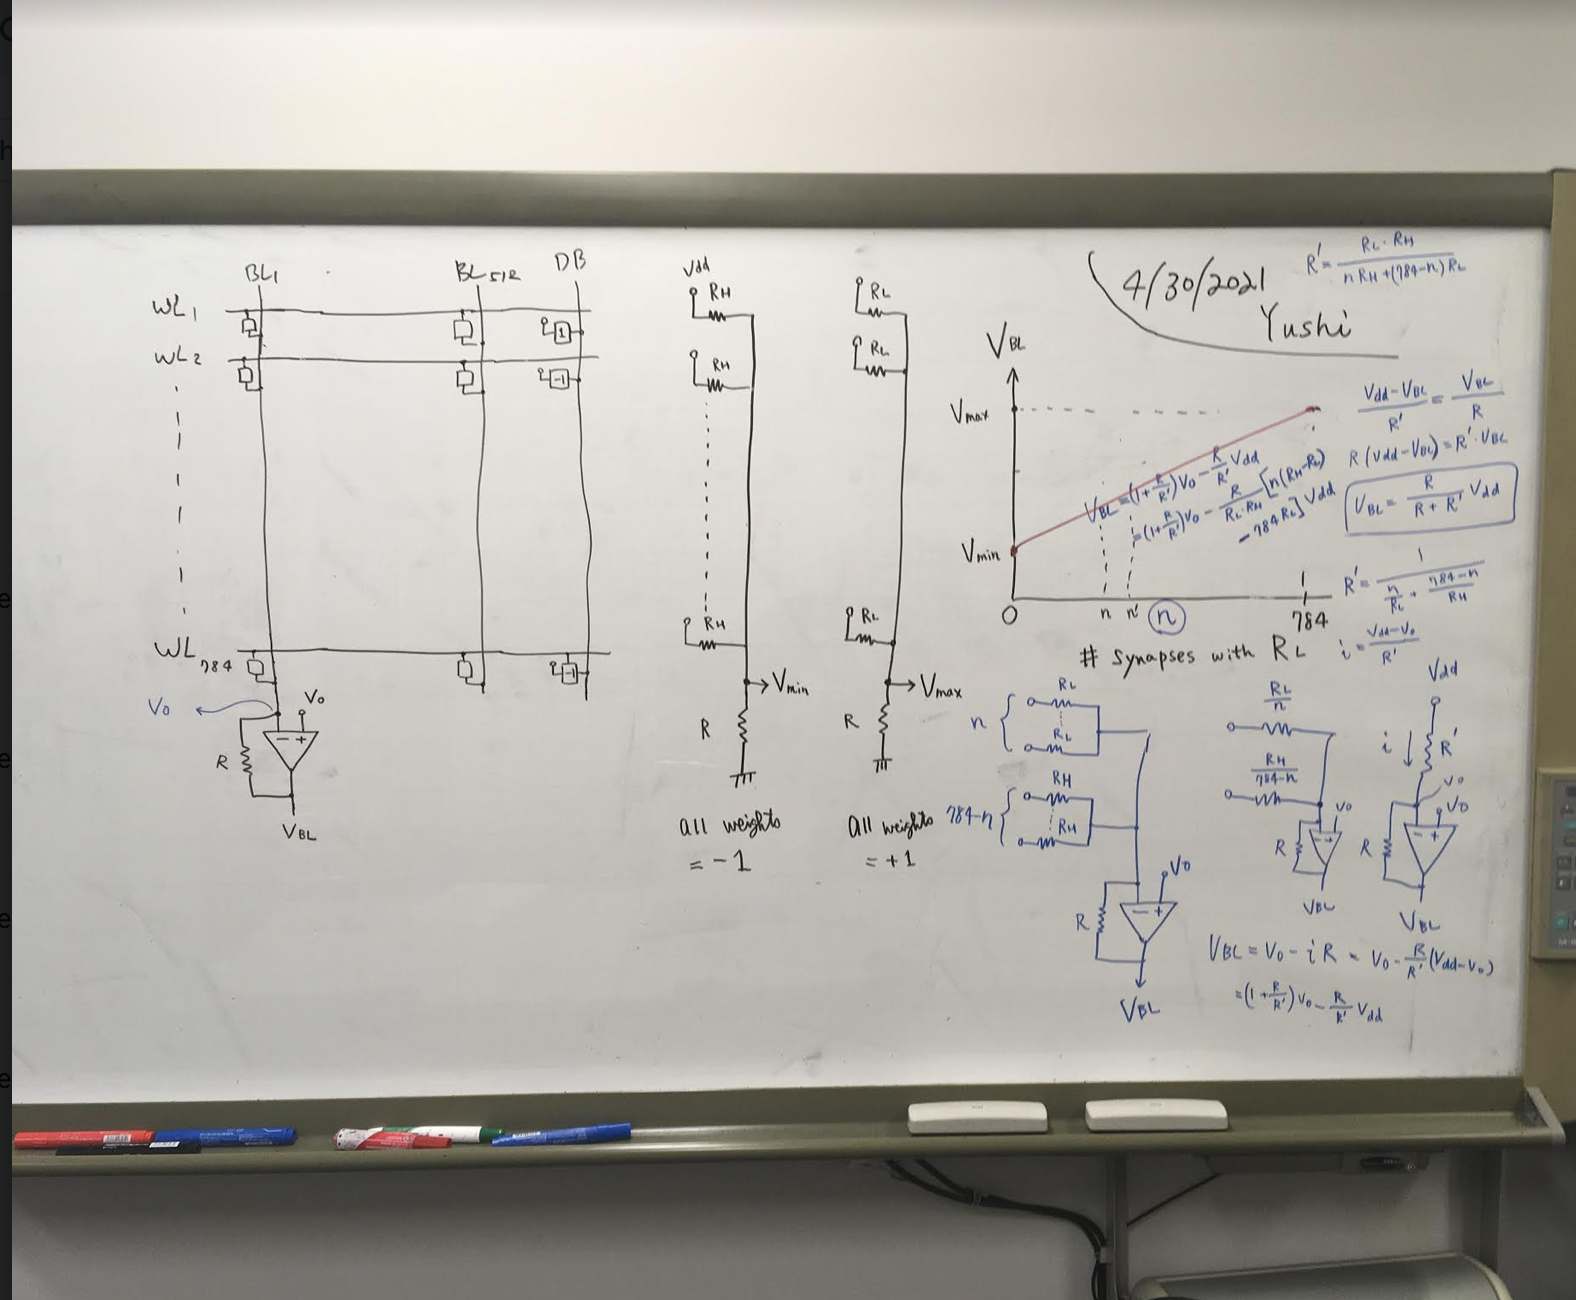 BL1
BL512
DB
WL1
WL2
WL784
1
-1
-1
V0
V0
- +
R
VBL
Vdd
RH
RH
RH
Vmin
R
all weights
= -1
RL
RL
RL
Vmax
R
all weights
= +1
4/30/2021
Yushi
R' = RL·RH / nRH+(784-n)RL
VBL
Vmax
Vmin
VBL = (1+R/R')V0 - R/R' Vdd
= (1+R/R')V0 - R/RL·RH [n(RH-RL)
- 784RL] Vdd
0
n
n'
n
784
# synapses with RL
Vdd-VBL / R' = VBL / R
R(Vdd-VBL) = R'·VBL
VBL = R / R+R' Vdd
R' = 1 / n/RL + 784-n/RH
i = Vdd-V0 / R'
n
RL
RL
784-n
RH
RH
V0
R
- +
VBL
RL/n
RH/784-n
V0
R
- +
VBL
Vdd
i
R'
V0
V0
R
- +
VBL
VBL = V0 - iR = V0 - R/R' (Vdd-V0)
= (1+R/R')V0 - R/R' Vdd